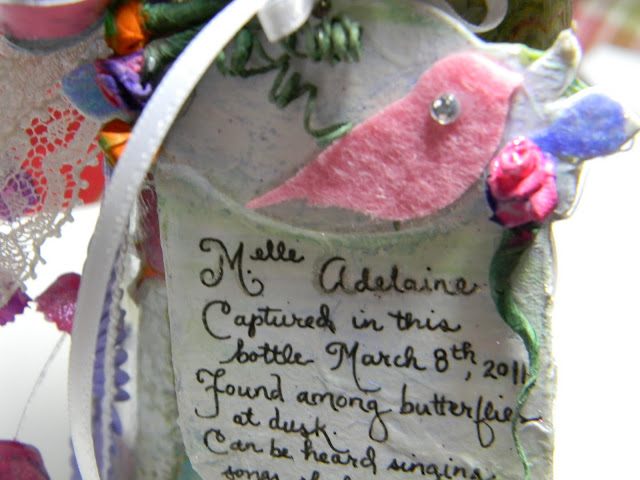 M.elle Adelaine
Captured in this
bottle March 8th, 2011
Found among butterflies
at dusk.
Can be heard singing
songs